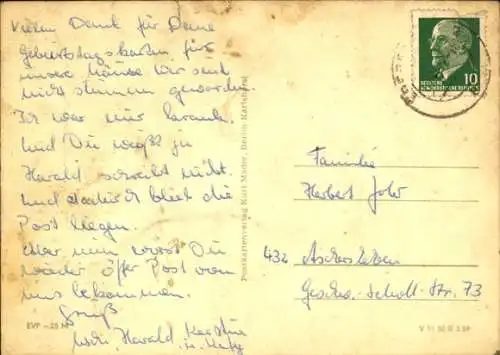 Vielen Dank für Deine
Geburtstagskarten für
unsere Mäuse. Wir sind
nicht stumm geworden.
Ich war nur krank.
und Du weißt ja
Harald schreibt nicht.
und dadurch blieb die
Post liegen.
Aber nun wirst Du
wieder öfter Post von
uns bekommen.
Gruß
Harald
EVP
Postkartenverlag Kurt Mader, Berlin-Karlshorst
10
DEUTSCHE
DEMOKRATISCHE REPUBLIK
Familie
Herbert
432 Aschersleben
Geschw.-Scholl-Str. 73
V 11 50